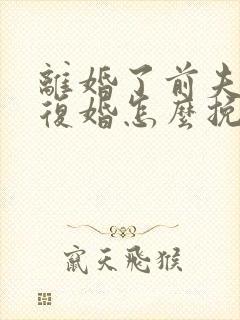 離婚了前夫
復婚怎麼挽
竄天飛猴